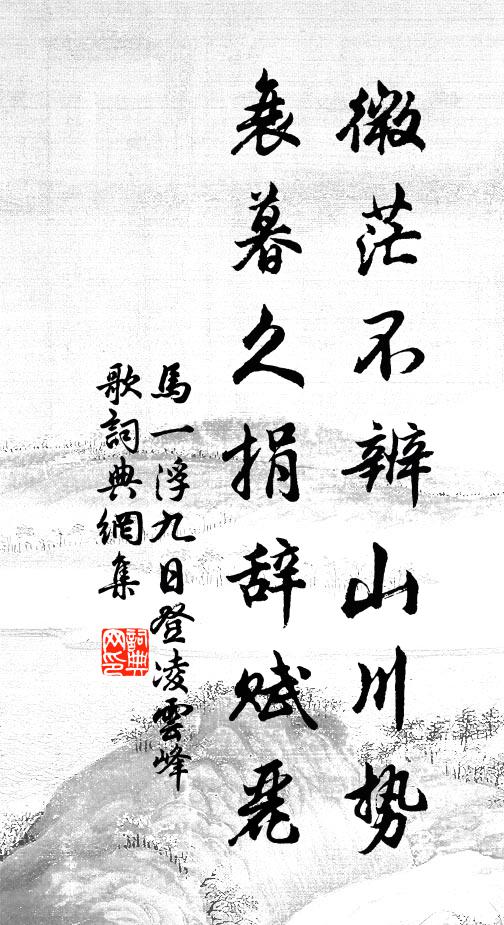 微茫不辨山川势
衰暮久捐辞赋麗
馬一浮九日登凌雲峰
歌詞典網集
詞典网印